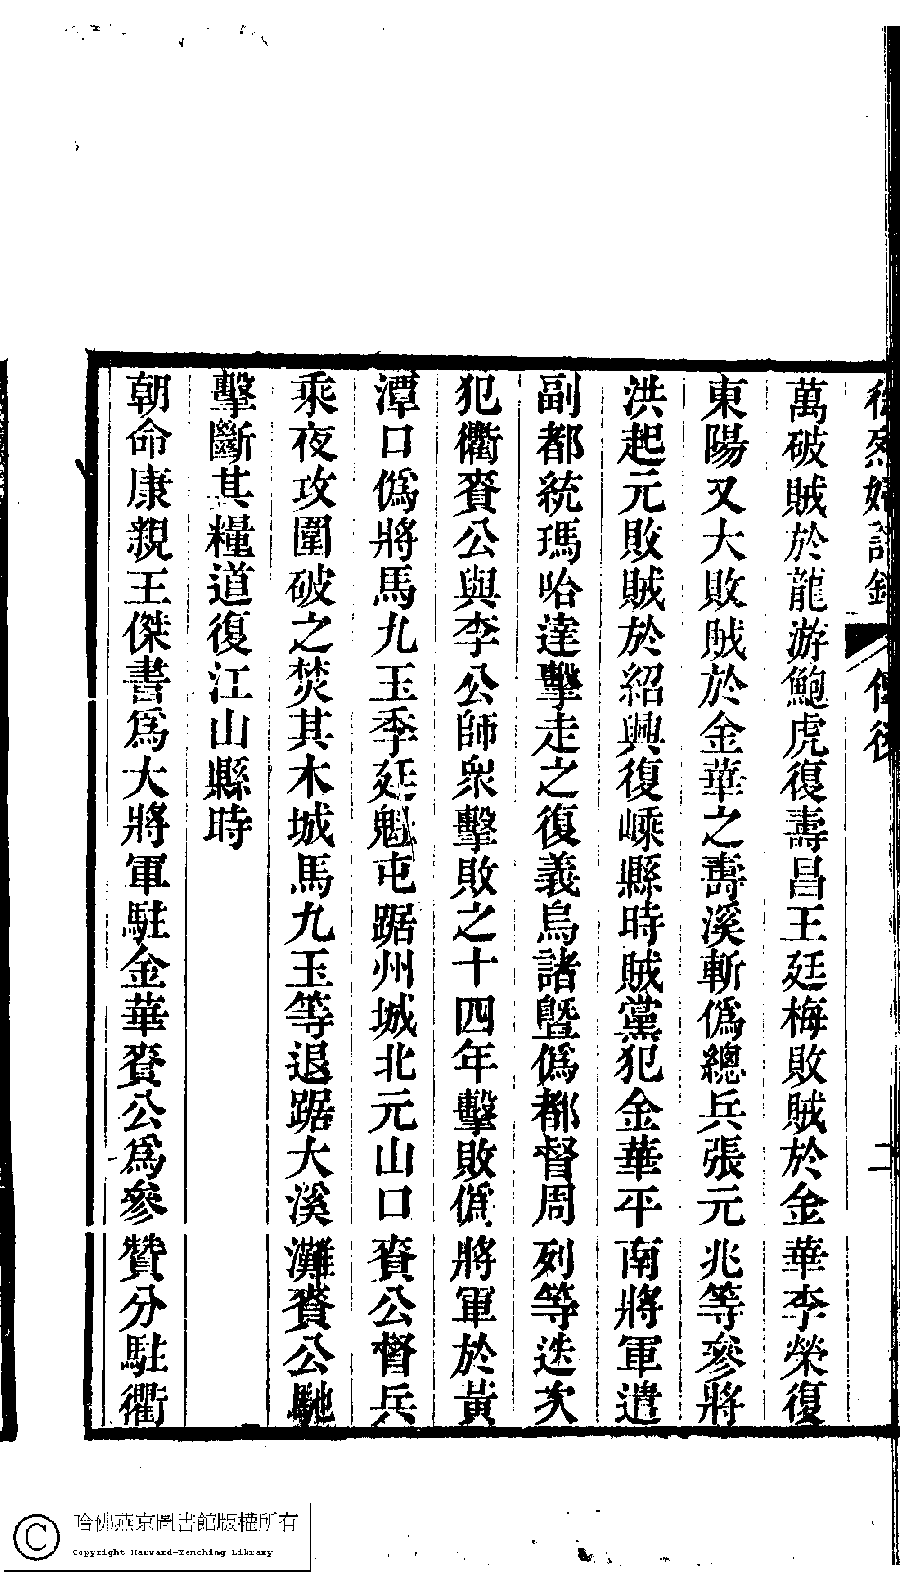 萬破賊於龍游鮑虎復壽昌王廷梅敗賊於金華李榮復
東陽又大敗賊於金華之壽溪斬僞總兵張元兆等參將
洪起元敗賊於紹興復嵊縣時賊黨犯金華平南將軍遣
副都統瑪哈達擊走之復義烏諸曁僞都督周列等迭次
犯衢賚公與李公師衆擊敗之十四年擊敗僞將軍於黃
潭口僞將馬九玉季廷魁屯踞州城北元山口賚公督兵
乘夜攻圍破之焚其木城馬九玉等退踞大溪灘賚公馳
擊斷其糧道復江山縣時
朝命康親王傑書爲大將軍駐金華賚公爲參贊分駐衢
哈佛燕京圖書館版權所有
Copyright Harvard-Yenching Library